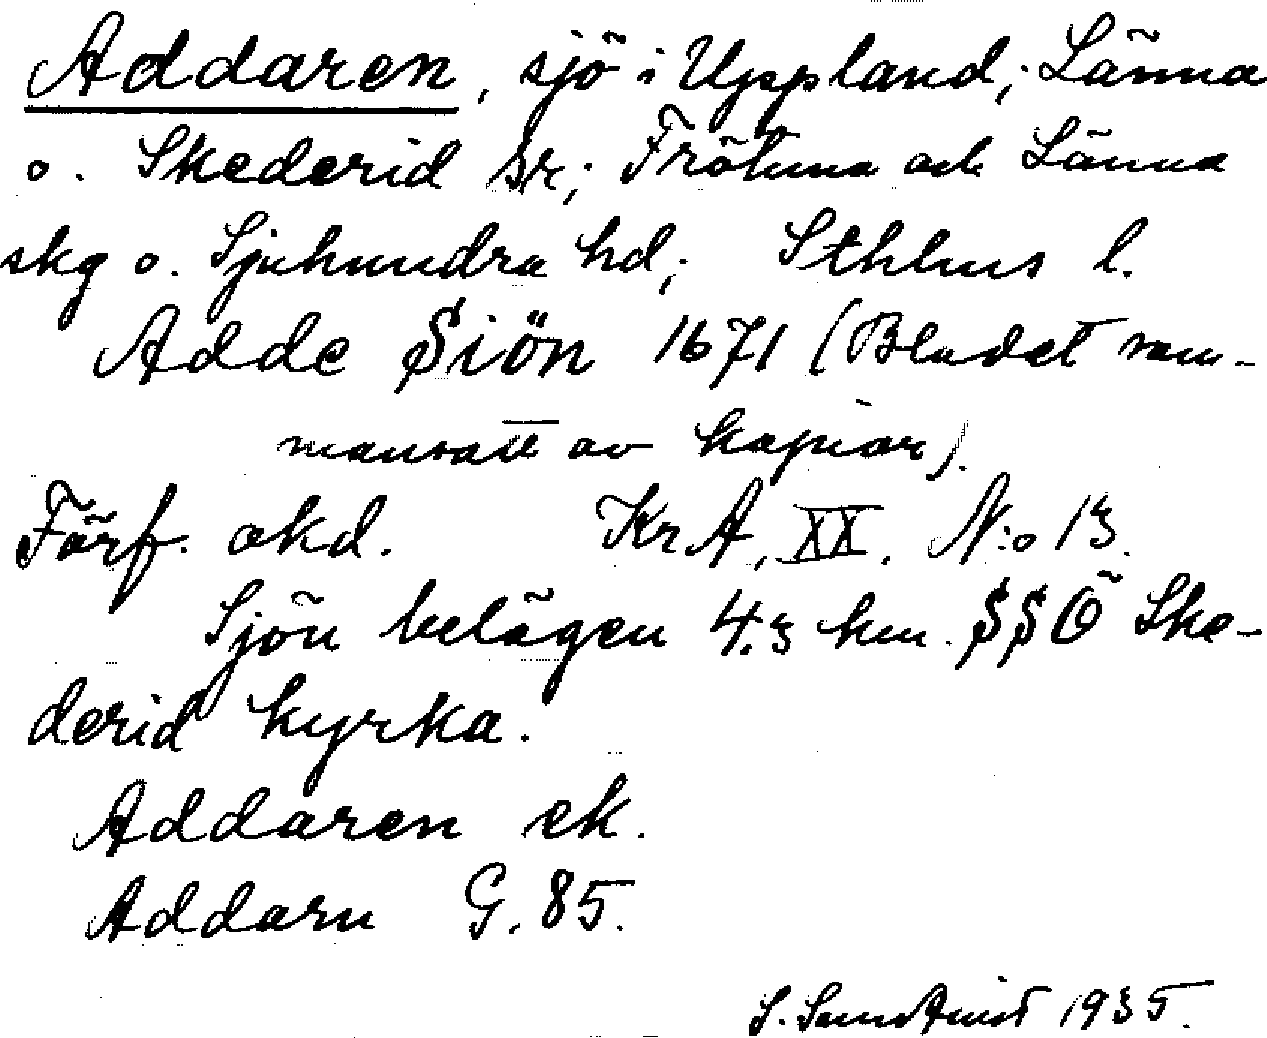 Addaren, sjö i Uppland; Länna
o. Skederid sr; Frötuna och Länna
skg o. Sjuhundra hd; Sthlms l.
Adde Siön 1671 (Bladet sam-
mansatt av kopior).
Förf. okd. Kr A, XX. N:o 13.
Sjön belägen 4.3 km SSÖ Ske-
derid kyrka.
Addaren ek.
Addarn G. 85.
S. Sundqvist 1935.